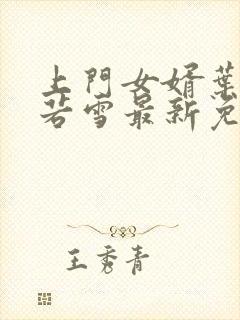 上門女婿葉
若雪最新免
王秀青